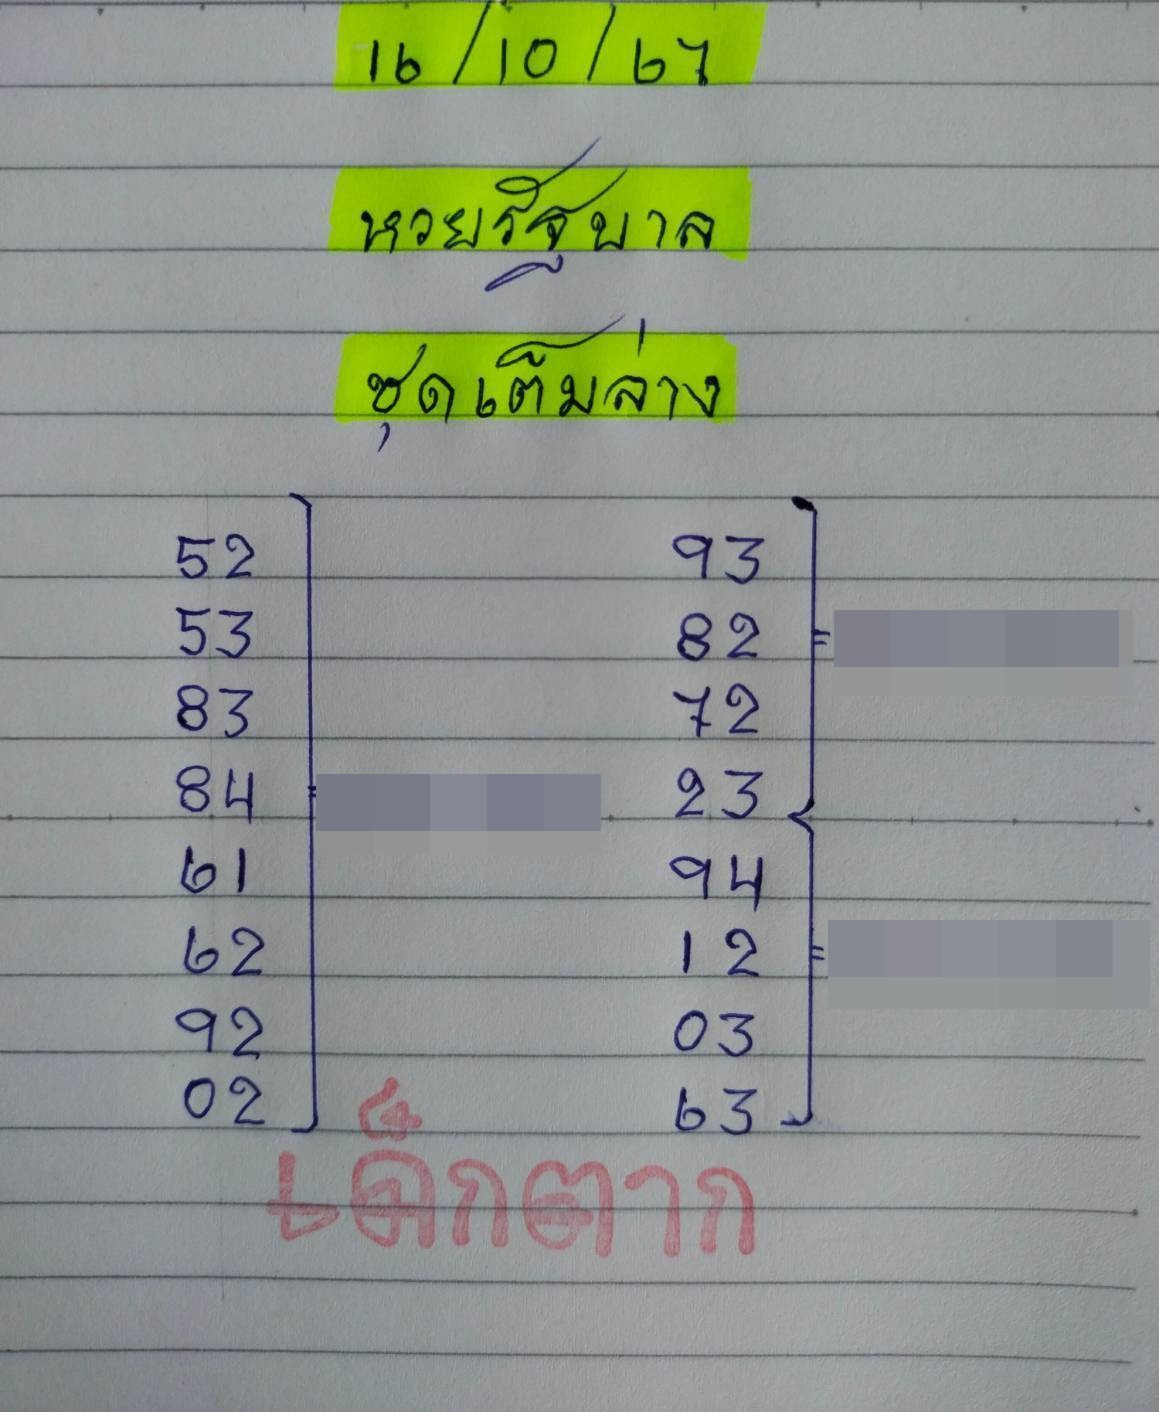 16/10/67
หวยรัฐบาล
ชุดเติมล่าง
52
53
83
84 =
61
62
92
02
93
82 =
72
23
94
12 =
03
63
เด็กตาก